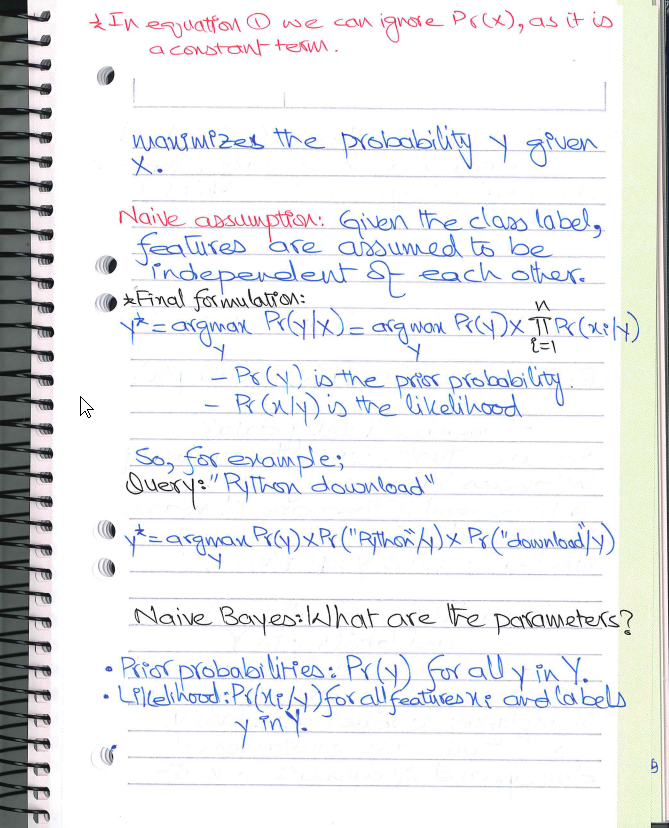 * In equation ① we can ignore Pr(X), as it is
a constant term.
maximizes the probability y given
X.
Naive assumption: Given the class label,
features are assumed to be
independent of each other.
* Final formulation:
y* = argmax Pr(y/X) = argmax Pr(y) x n∏i=1 Pr(xi/y)
y y
- Pr(y) is the prior probability.
- Pr(x/y) is the likelihood
So, for example;
Query: "Python download"
y* = argmax Pr(y) x Pr("Python"/y) x Pr("download"/y)
y
Naive Bayes: What are the parameters?
• Prior probabilities: Pr(y) for all y in Y.
• Likelihood: Pr(xi/y) for all features xi and labels
y in Y.